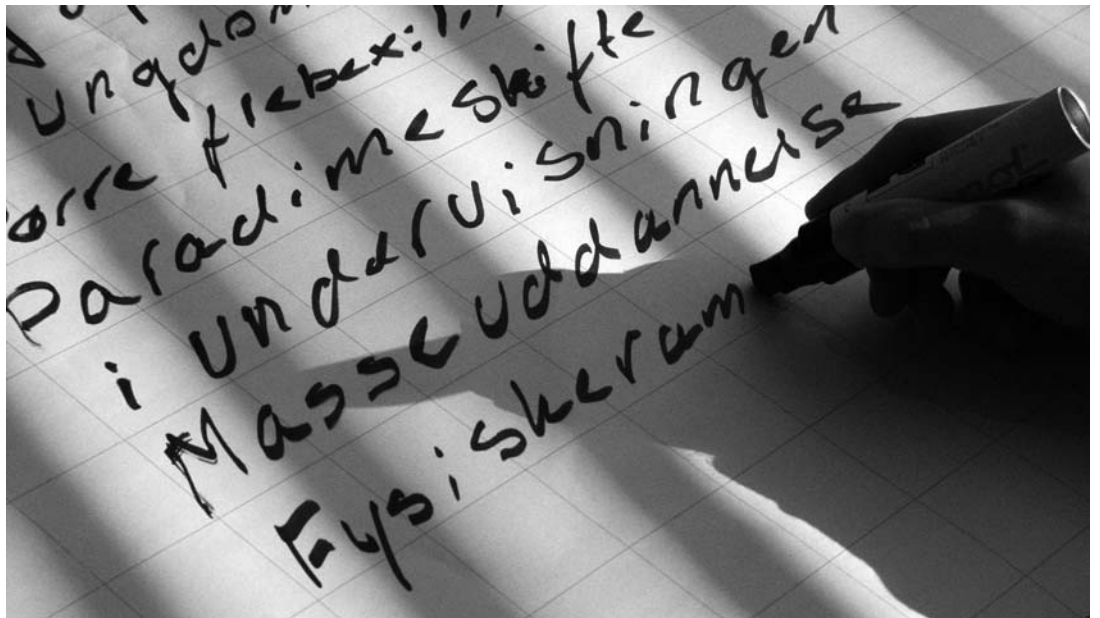 ungdom
orre
Paradimeskifte
i undervisningen
Masseuddannelse
Fysiske ram